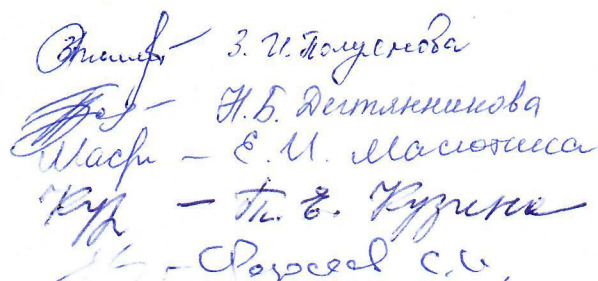 З. И. Полуенова
Н. Б. Дегтянникова
Масю — Е. И. Масютина
Кур — Т. Е. Кузина
Федосеев С. И.